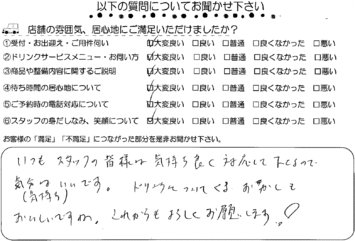 以下の質問についてお聞かせ下さい
店舗の雰囲気、居心地にご満足いただけましたか?
①受付・お出迎え・ご用件伺い ☑大変良い □良い □普通 □良くなかった □悪い
②ドリンクサービスメニュー・お伺い方 ☑大変良い □良い □普通 □良くなかった □悪い
③商品や整備内容に関するご説明 ☑大変良い □良い □普通 □良くなかった □悪い
④待ち時間の居心地について ☑大変良い □良い □普通 □良くなかった □悪い
⑤ご予約時の電話対応について ☑大変良い □良い □普通 □良くなかった □悪い
⑥スタッフの身だしなみ、笑顔について ☑大変良い □良い □普通 □良くなかった □悪い
お客様の「満足」「不満足」につながった部分を是非お聞かせ下さい。
いつもスタッフの皆様は気持ち良く対応して下さるので
気分はいいです。ドリンクについてくる お菓しも
(気持ち)
おいしいですね。これからもよろしくお願いします!